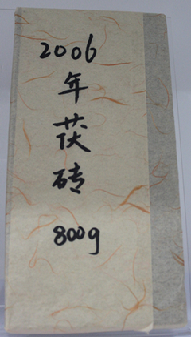 2006
年
茯
砖
800g